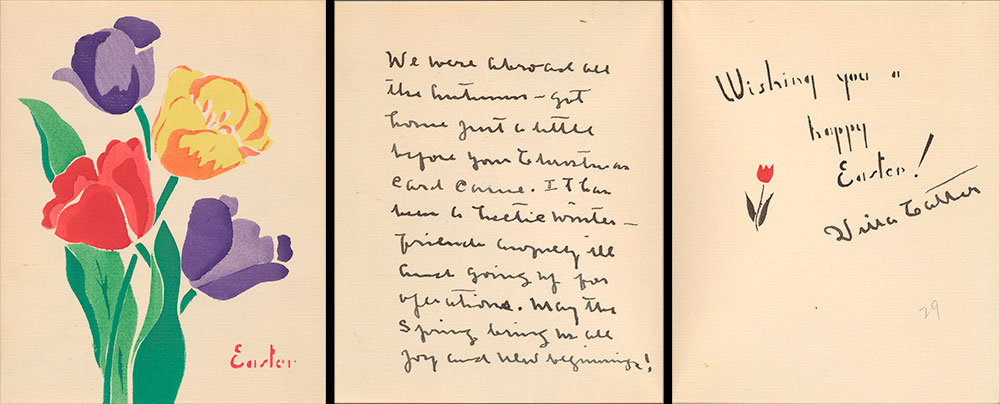 Easter
We were abroad all
the Autumn – got
home just a little
before your Christmas
card came. It has
been a hectic winter –
friends awfully ill
and going up for
operations. May the
Spring bring us all
Joy and new beginnings!
Wishing you a
happy
Easter!
Willa Cather
29